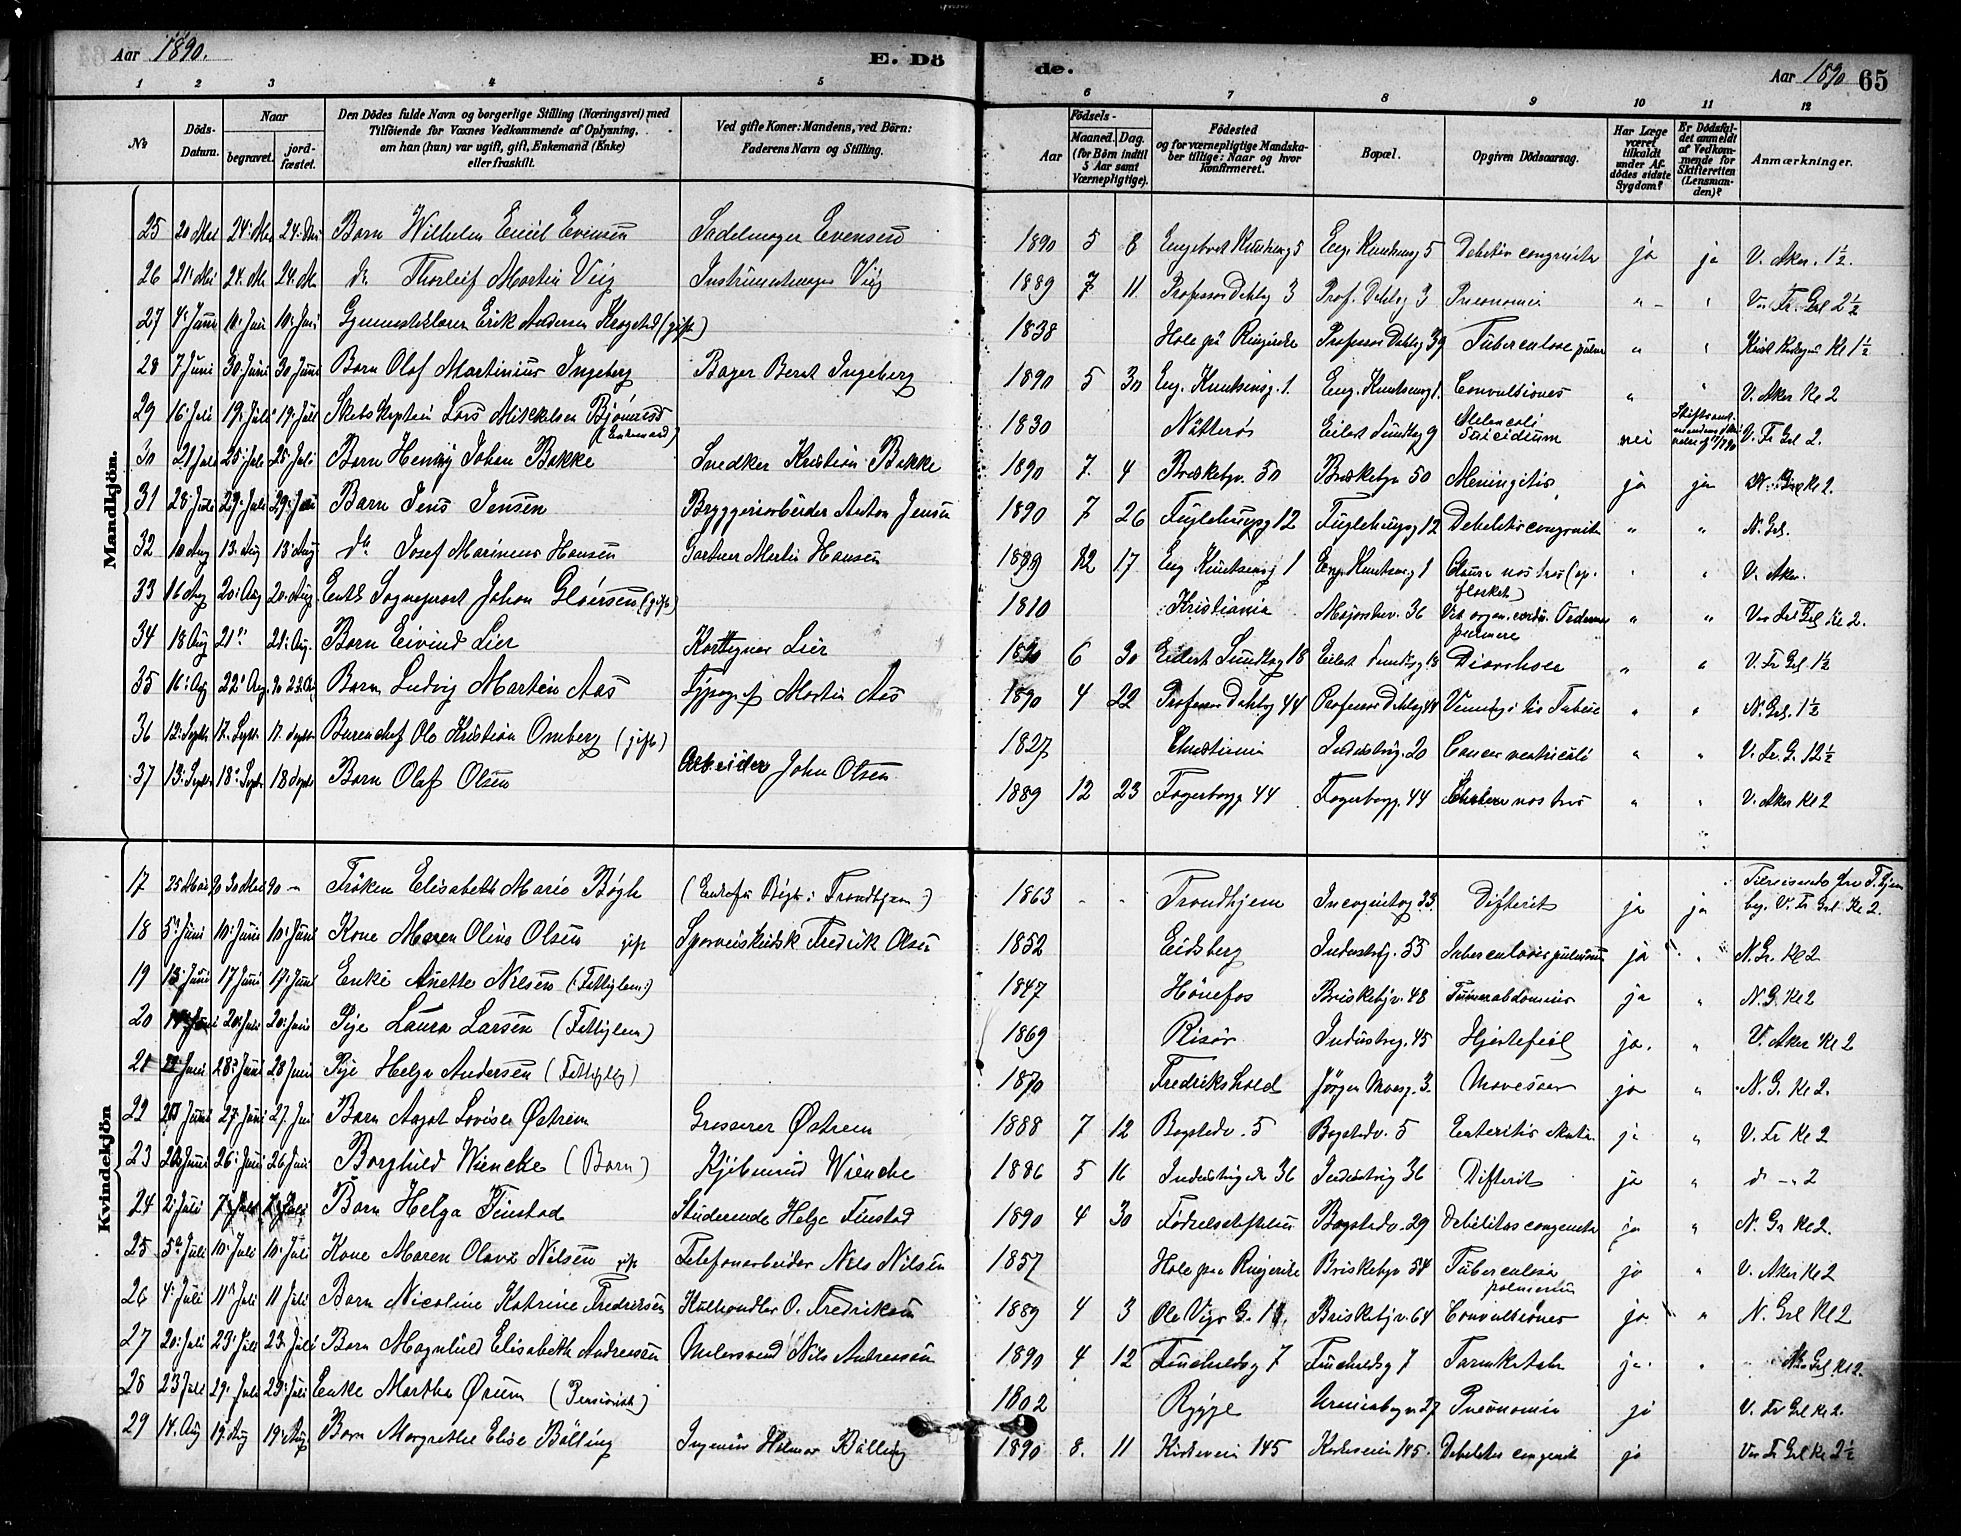 Aar 1890.
E. Dö
de.
Aar 1890 65
1 2 3 4 5 6 7 8 9 10 11 12
No
Döds-Datum.
Naar
begravet.
jordfæstet.
Den Dödes fulde Navn og borgerlige Stilling (Næringsvei) med
Tilföiende for Voxnes Vedkommende af Oplysning,
om han (hun) var ugift, gift, Enkemand (Enke)
eller fraskilt.
Ved gifte Koner: Mandens, ved Börn:
Faderens Navn og Stilling.
Födsels-
Aar
Maaned. Dag.
(for Börn indtil
5 Aar samt
Værnepligtige).
Födested
og for værnepligtige Mandskaber tillige: Naar og hvor
konfirmeret.
Bopæl.
Opgiven Dödsaarsag.
Har Læge
været
tilkaldt
under Afdödes sidste
Sygdom?
Er Dödsfaldet anmeldt
af Vedkommende for
Skifteretten
(Lensmanden)?
Anmærkninger.
Mandkjön.
25 20 Mai 24: Mai 24: Mai Barn Wilhelm Emil Evensen Sadelmager Evensen 1890 5 8 Eug. Knudsensg 5 Debilitas congenita ja ja V. Aker. 1½.
26 21 Mai 24. Mai 24. Mai do Thorleif Martin Viig Instrumentmager Viig 1889 7 11. Professor Dahlsg 3 Prof. Dahlsg 3 Pneumonia " " Vor Fr. Grl 2½
27 4: Juni 10: Juni 10: Juni Gymnastiklærer Erik Andersen Krogstad (gift) 1838 Hole på Ringerike Professor Dahlsg 39 Tuberculose pulm " " Kl 1½
28 7 Juni 30. Juni 30 Juni Barn Olaf Martinius Ingeberg Bager Bernt Ingeberg 1890 5 30 Eug. Knudsensg. 1 Eug. Knudsensg 1. Convultiones " " V. Aker Kl 2
29 16: Juli 19: Juli 19: Juli Lars Mikkelsen (Enkemand) 1830 Nøtterø Eilert Sundtsg 9 Melancoli Suicidium nei V. Fr Grl 2.
30 21 Juli 25: Juli 25 Juli Barn Henry Johan Bakke Snedker Kristian Bakke 1890 7. 4 Briskebyv. 50 Briskebyv 50 Meningitis ja ja Kl 2.
31 28 Juli 29: Juli 29: Juli Barn Jens Jensen Bryggeriarbeider Anton Jensen 1890 7 26 Fuglehaugsg 12 Fuglehaugsg 12 Debilitas congenita " " N. Grl.
32 10 Aug 13. Aug 18 Aug do Josef Marinius Hansen Gartner Martin Hansen 1889 12 17 Eug Knudsensg 1 Eug. Knudsensg 1 " " V. Aker.
33 16 Aug 20: Aug 20: Aug. Sogneprest Johan (gift) 1810 Kristiania Majorstuv. 36 " " Vor Fr Grl Kl 2.
34 18 Aug 21" 21: Aug. Barn Eivind Lier Lier 1890 6 30 Eilert Sundtsg 18 Eilert Sundtsg 18 Diarrhoea " " V. Fr Grl 1½
35 16: Aug 22: Aug Barn Ludvig Martin Aas Typograf Martin Aas 1890 4 22 Professor Dahlsg 44 Professor Dahlsg 44 " " N. Grl. 1½
36 12: Septbr 17. Septr. 17. Septbr Bureauchef Ole Kristian Omberg (gift) 1827 Christiania Industrig. 20 Cancer ventriculi " " V. Fr. G. 12½
37 13: Septbr 18: Septbr 18 Septbr Barn Olaf Olsen Arbeider John Olsen 1889 12 23 Fagerborgg 44 Fagerborgg. 44 Cholera nostras " " V. Aker Kl 2
Kvindekjön
17 25 Mai 30 Mai 30 Frøken Elisabeth Marie Bøgh Trondhjem) 1863 - - Trondhjem Incognitog 33. Difterit ja ja Tilreisende fra T.hjem
beg. V. Fr Grl. Kl 2.
18 5: Juni 10: Juni 10: Juni Kone Maren Oline Olsen gift Sporveiskudsk Fredrik Olsen 1852 Eidsberg Industrig. 55 Tuberculosis pulmonum ja " N. Gr. Kl 2
19 13: Juni 17 Juni 17: Juni Enke Anette Nilsen (Fattiglem) 1847 Hönefos Briskebyv. 48 Tumor abdominis ja " N. G. Kl 2
20 20: Juni 20: Juni Pige Laura Larsen (Fattiglem) 1869 Risør Industrig. 45 Hjertefeil ja. " V. Aker Kl 2
21 Juni 28: Juni 28 Juni Pige Helga Andersen (Fattiglem) 1870 Fredrikshald Jörgen Moesg. 3. ja " N. G. Kl 2.
22 Juni 27: Juni 27. Juni Barn Aagot Lovise Østrem Grosserer Østrem 1888 7 12 Bogstadv. 5 Bogstadv. 5 Enteritis Akuta ja " V. Fr Kl 2
23 Juni 26: Juni 26 Juni Borghild Wiencke (Barn) Kjøbmand Wiencke 1886 5 16 Industrigaden 36 Industrig 36 Difterit ja " do - " 2
24 2: Juli 7 Juli 7 Juli Barn Helga Finstad Studerende Helge Finstad 1890 4 30 Födselsstiftelsen Bogstadv. 29 Debilitas congenita ja " N. Gr Kl 2.
25 5: Juli 10: Juli 10: Juli Kone Maren Olava Nilsen gift Telefonarbeider Nils Nilsen 1857 Hole paa Ringerike Briskebyv 54 Tuberculosis pulmonum ja " V. Aker Kl 2
26 4: Juli 11: Juli 11 Juli Barn Nicoline Katrine Fredriksen Kulhandler O. Fredriksen 1889 4 3 Ole Vigs G. Briskebyv. 64 Convultiones ja " N. Grl Kl 2
27 20: Juli 23: Juli 23: Juli Barn Magnhild Elisabeth Andresen Malersvend Nils Andresen 1890 4 12 7 7 Tarmkatarh ja. " N. Grl Kl 2.
28 23 Juli 29. Juli 29: Juli Enke Martha Ørum (Pensionist) 1802 Rygge 27 Pneumonia ja V. Fr Grl Kl 2.
29 14. Aug 19: Aug 19: Aug Barn Margrethe Elise Bölling Ingeniör Hilmar Bölling 1890 8. 11 Kirkeveien 145 Kirkeveien 145. Debilitas congenita ja Vor Fr Grl Kl 2½